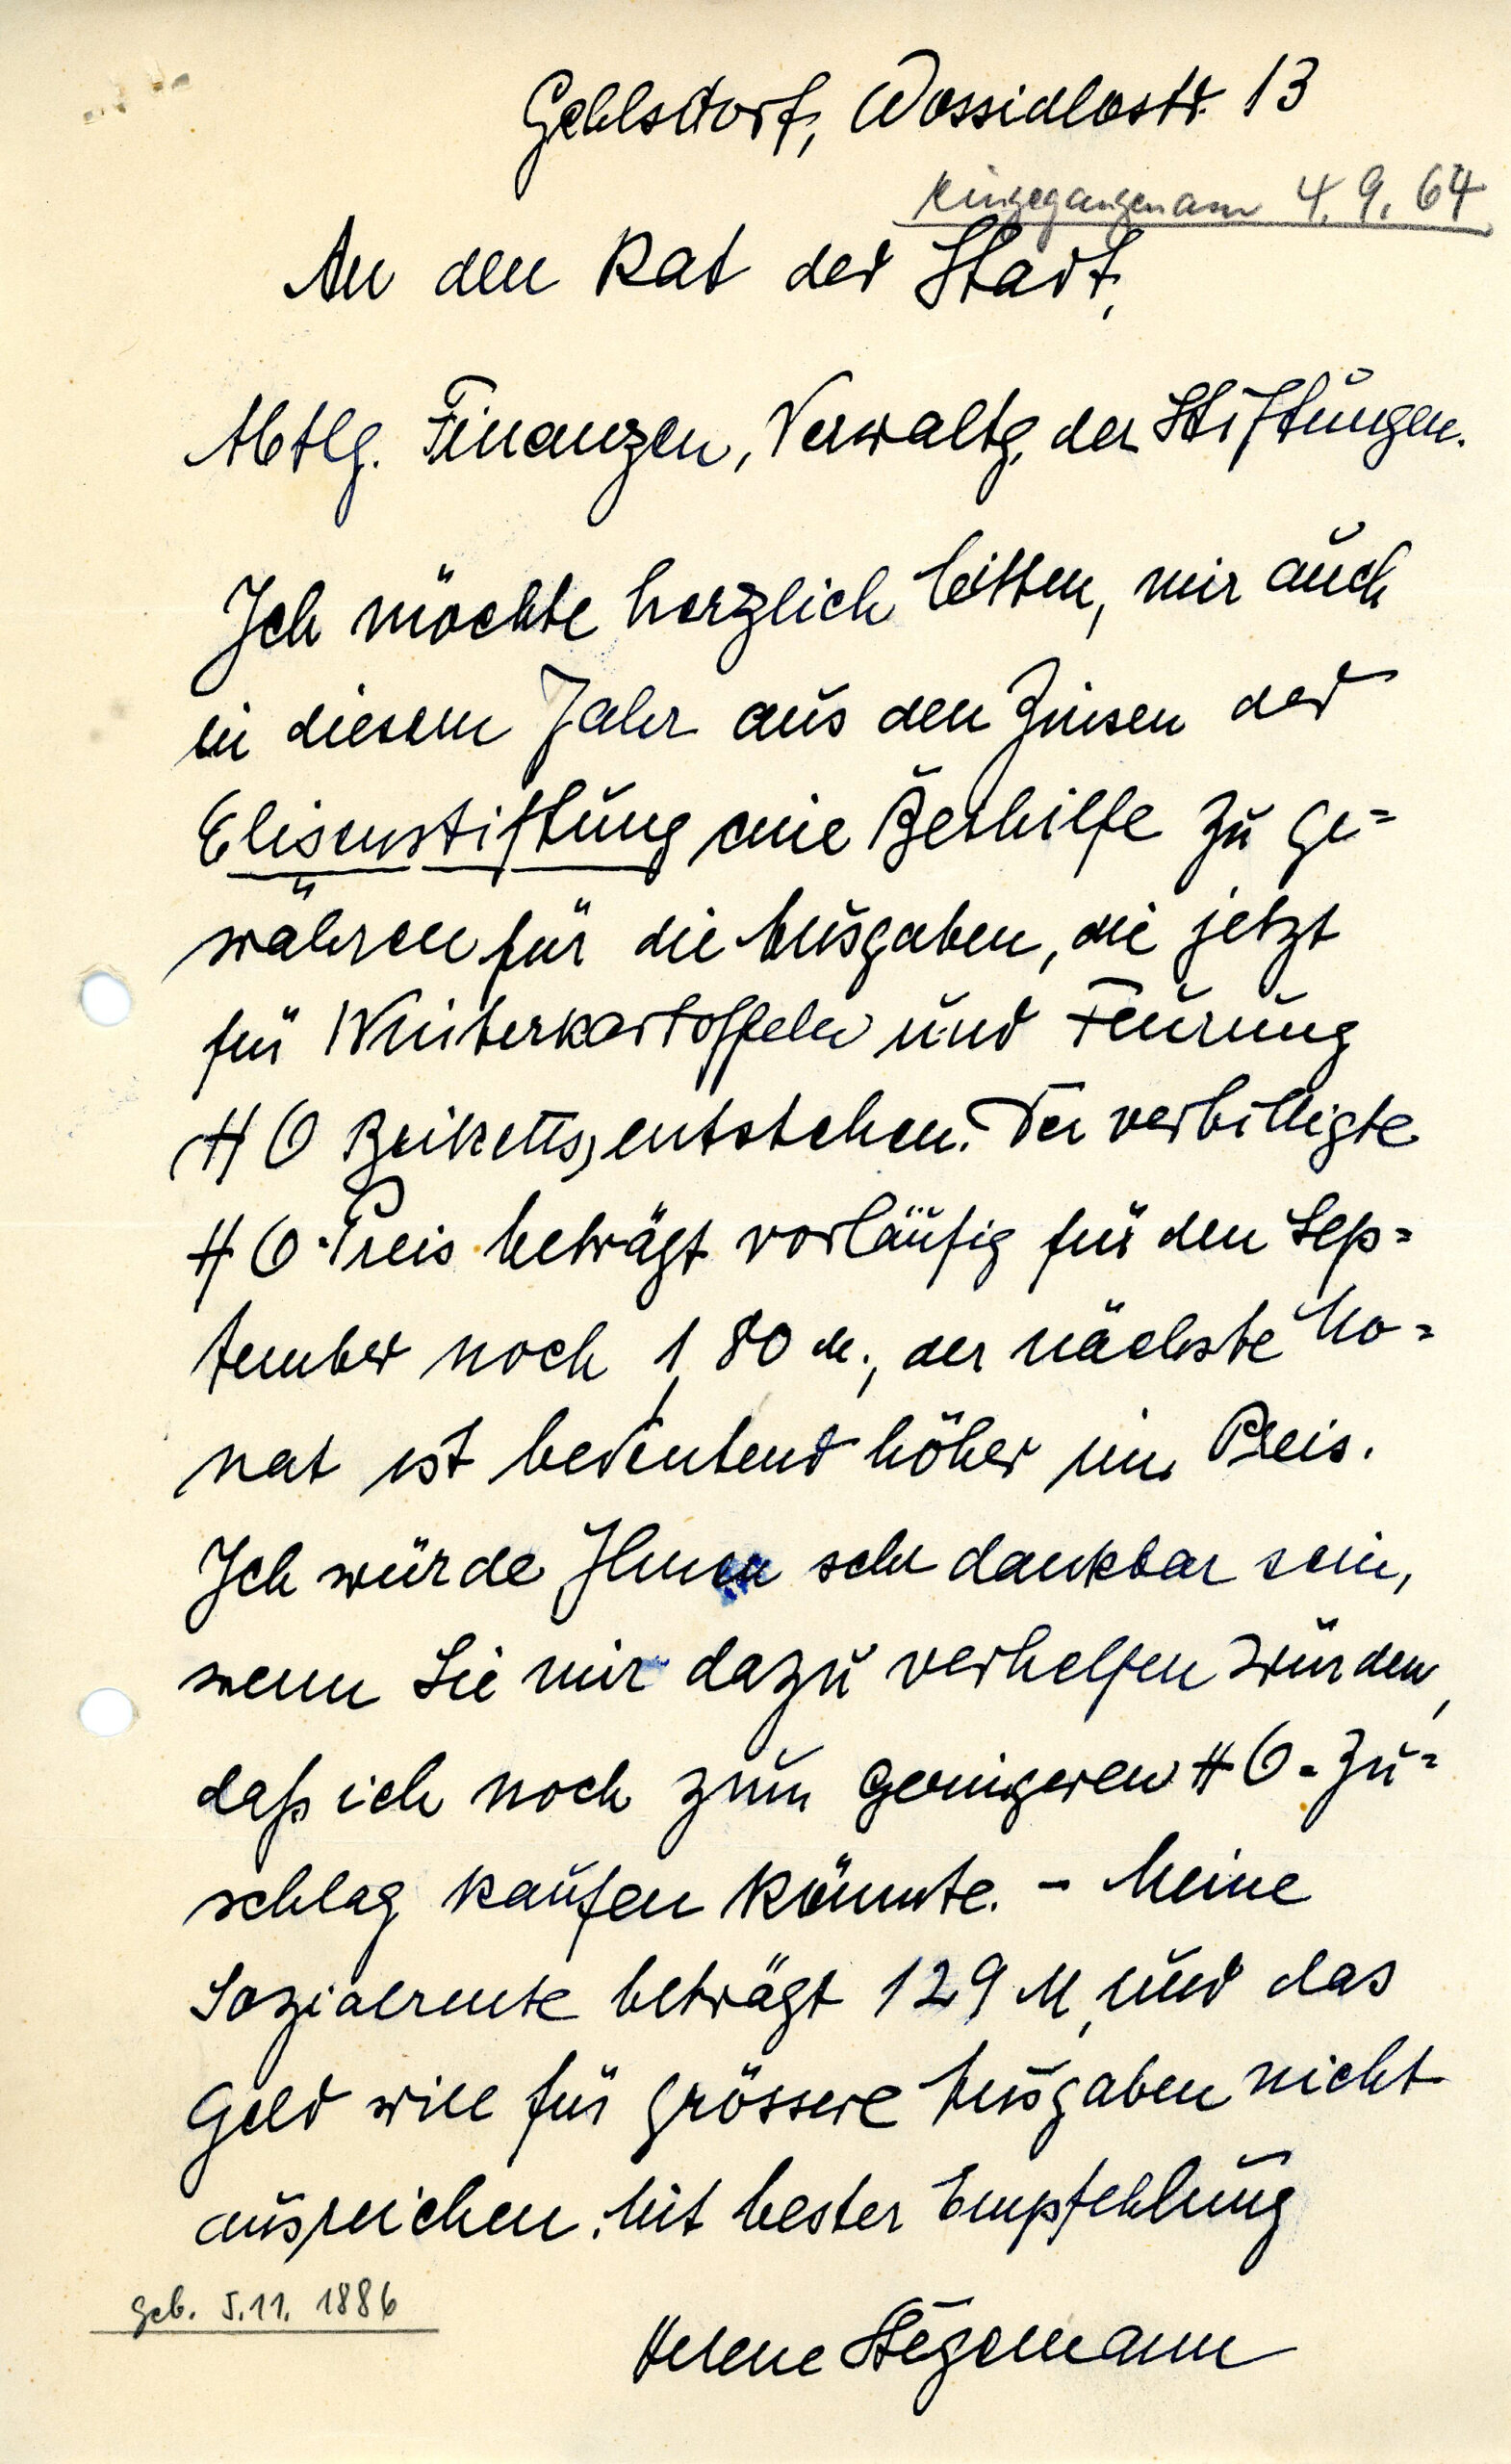 Gehlsdorf, Wossidlostr. 13
Eingegangen am 4.9.64
An den Rat der Stadt,
Abtlg. Finanzen, Verwaltg. der Stiftungen.
Ich möchte herzlich bitten, mir auch
in diesem Jahr aus den Zinsen der
Elisenstiftung eine Beihilfe zu ge=
währen für die Ausgaben, die jetzt
für Winterkartoffeln und Feurung
HO Briketts, entstehen. Der verbilligte
HO-Preis beträgt vorläufig für den Sep=
tember noch 1,80 M., der nächste Mo=
nat ist bedeutend höher im Preis.
Ich würde Ihnen sehr dankbar sein,
wenn Sie mir dazu verhelfen würden,
daß ich noch zum geringeren HO-Zu=
schlag kaufen könnte. - Meine
Sozialrente beträgt 129 M, und das
Geld will für grössere Ausgaben nicht
ausreichen. Mit bester Empfehlung
geb. 5.11. 1886
Helene Stegemann